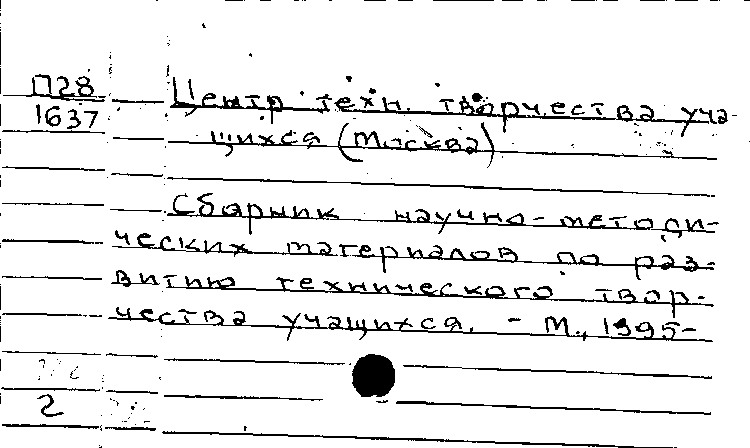 П28
1637
Центр техн. творчества уча-
щихся (Москва)
Сборник научно-методи-
ческих материалов по раз-
витию технического твор-
чества учащихся. - М., 1995-
2